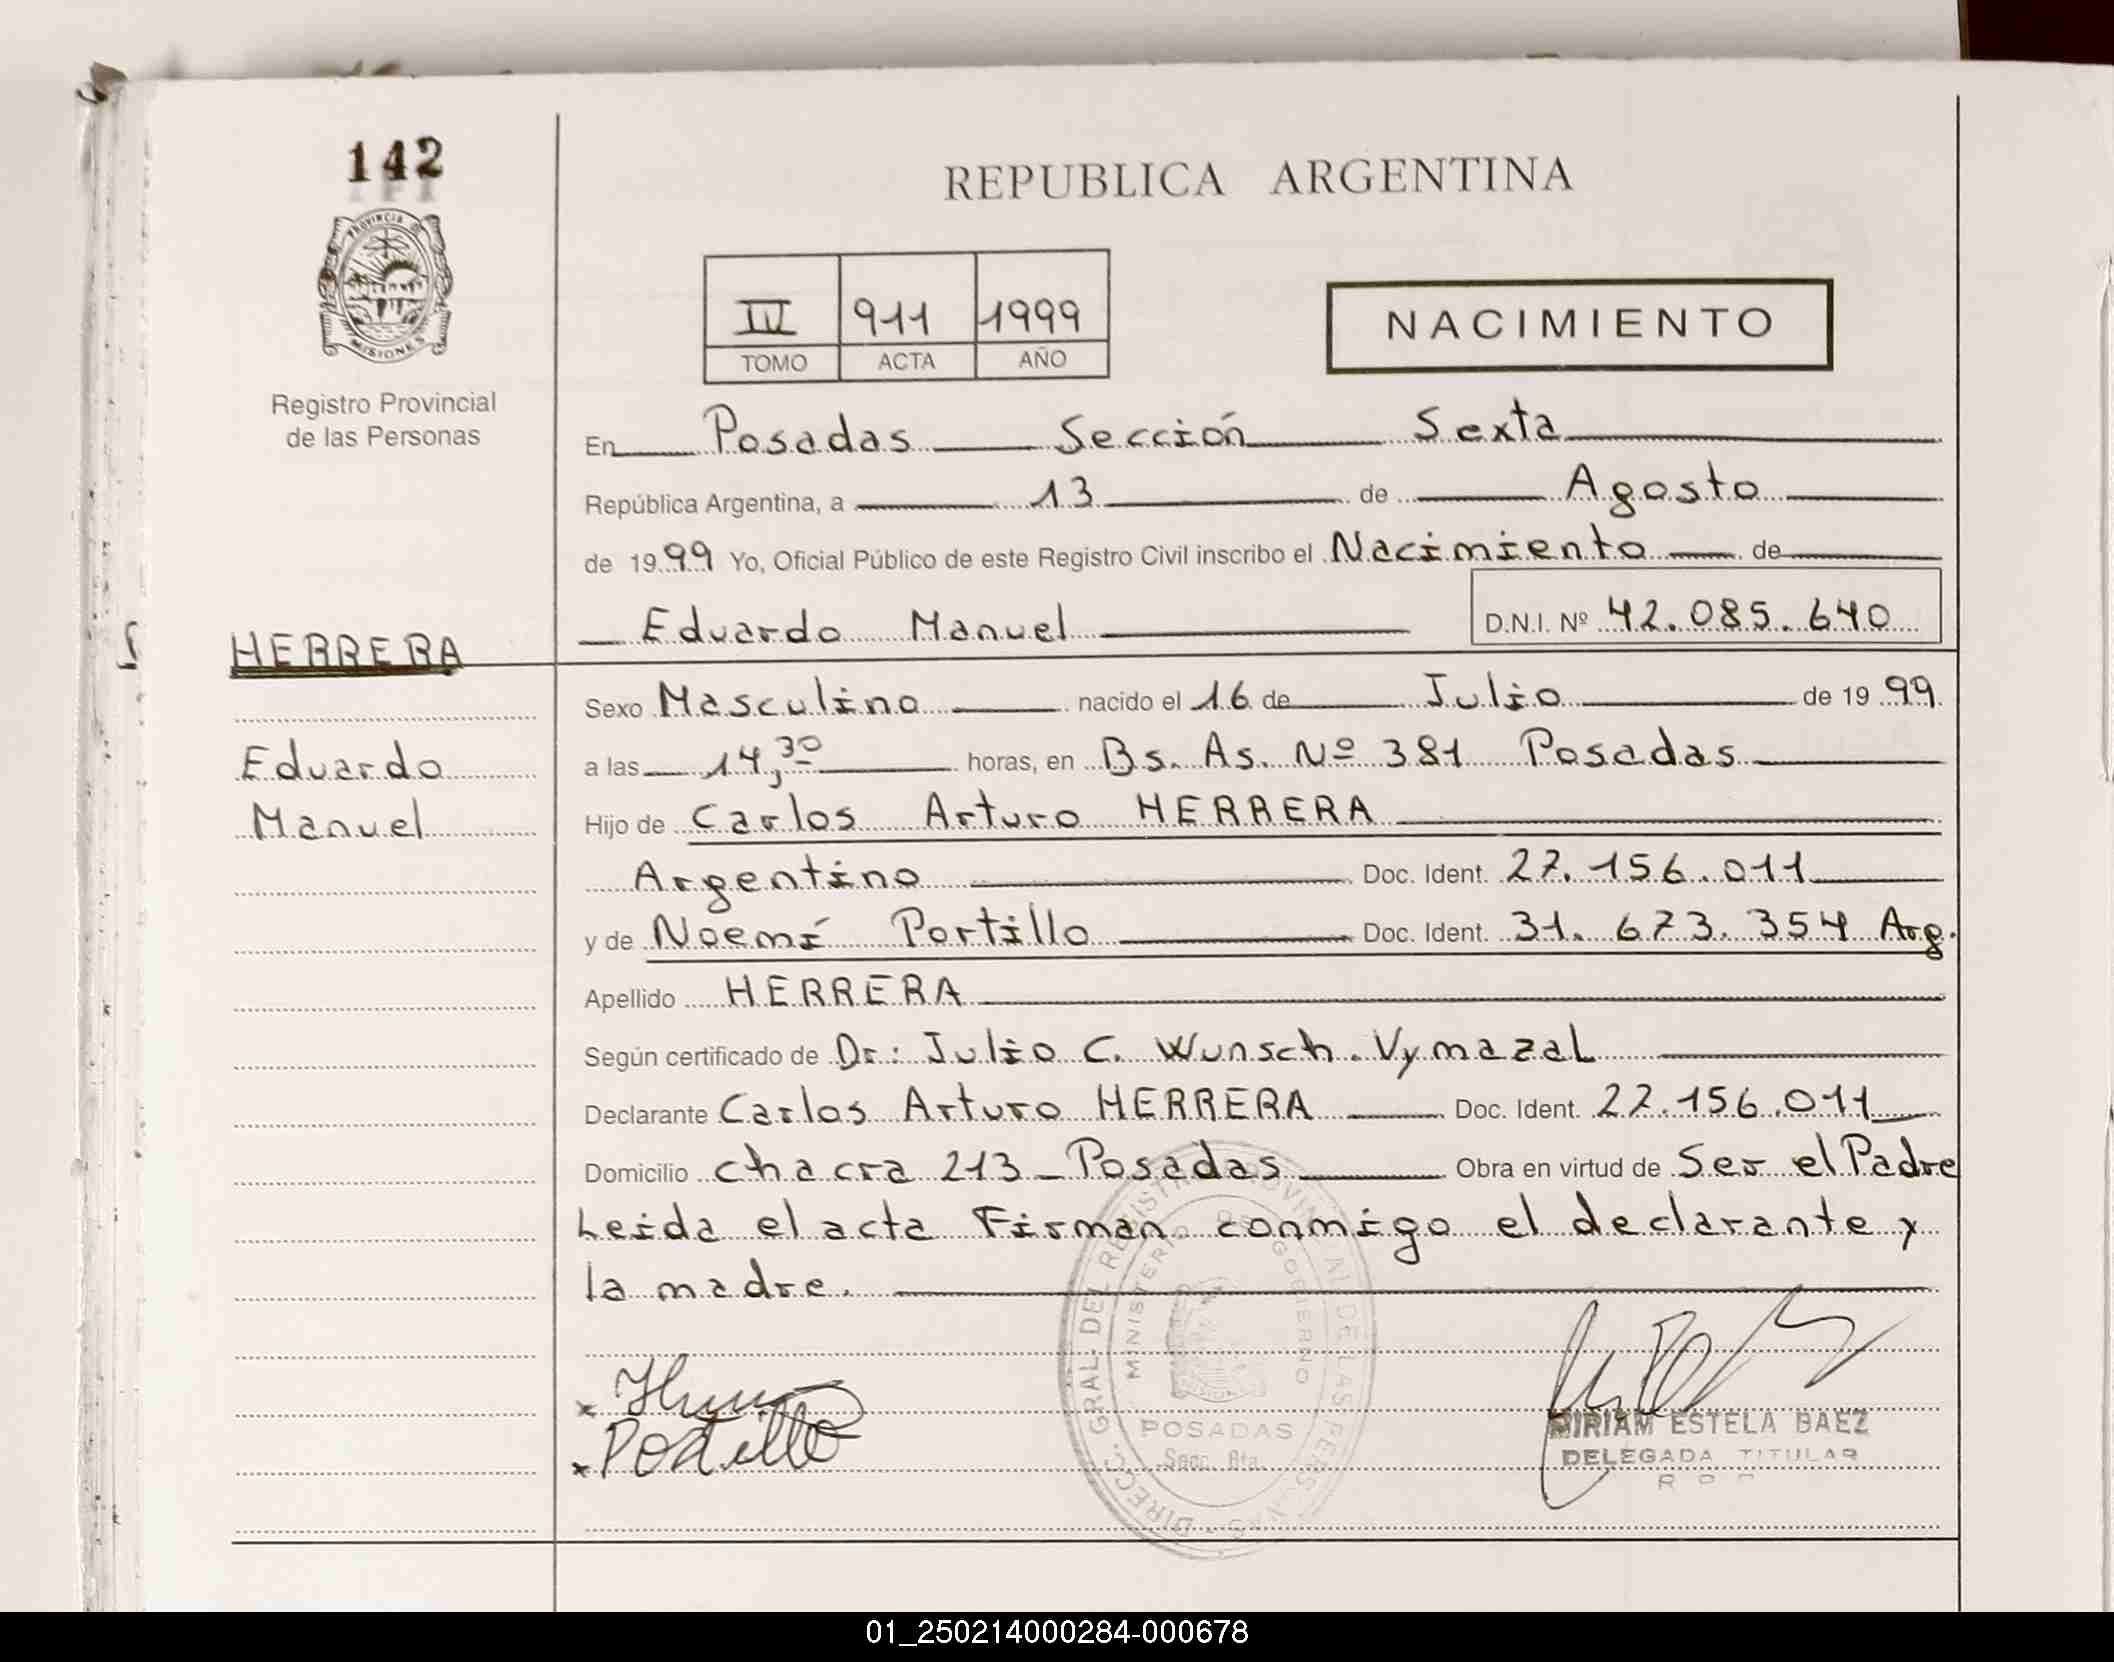 142
PROVINCIA DE
MISIONES
Registro Provincial
de las Personas
REPUBLICA ARGENTINA
IV 911 1999
TOMO ACTA AÑO
NACIMIENTO
En Posadas Sección Sexta
República Argentina, a 13 de Agosto
de 1999 Yo, Oficial Público de este Registro Civil inscribo el Nacimiento de
Eduardo Manuel D.N.I. Nº 42.085.640
HERRERA
Sexo Masculino nacido el 16 de Julio de 1999
Eduardo
a las 14,30 horas, en Bs. As. Nº 381 Posadas
Manuel
Hijo de Carlos Arturo HERRERA
Argentino Doc. Ident. 27.156.011
y de Noemí Portillo Doc. Ident. 31.673.354 Arg.
Apellido HERRERA
Según certificado de Dr: Julio C. Wunsch. Vymazal
Declarante Carlos Arturo HERRERA Doc. Ident. 27.156.011
Domicilio chacra 213 - Posadas Obra en virtud de Ser el Padre
Leida el acta Firman conmigo el declarante y
la madre.
DIREC. GRAL. DEL REGISTRO PROVINCIAL DE LAS PERS
MINISTERIO DE GOBIERNO
POSADAS
Secc. 6ta.
Portillo
MIRIAM ESTELA BAEZ
DELEGADA TITULAR
01_250214000284-000678